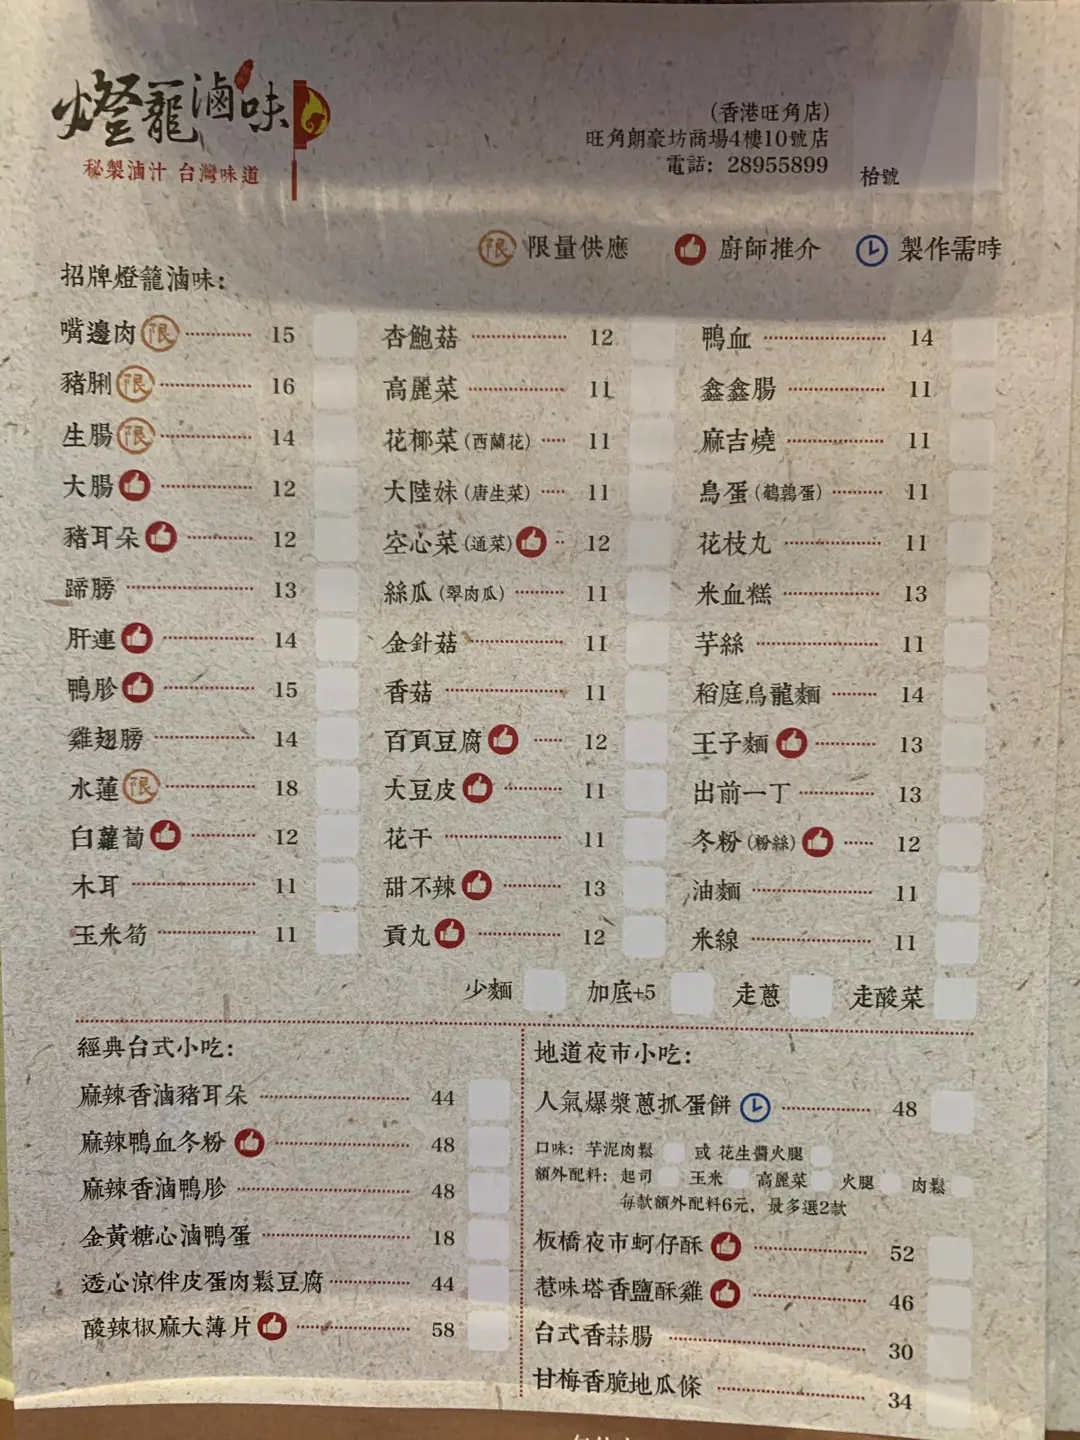 燈籠滷味
秘製滷汁 台灣味道
(香港旺角店)
旺角朗豪坊商場4樓10號店
電話: 28955899
枱號
限 限量供應 廚師推介 製作需時
招牌燈籠滷味:
嘴邊肉 限 15
豬脷 限 16
生腸 限 14
大腸 12
豬耳朵 12
蹄膀 13
肝連 14
鴨胗 15
雞翅膀 14
水蓮 限 18
白蘿蔔 12
木耳 11
玉米筍 11
杏鮑菇 12
高麗菜 11
花椰菜(西蘭花) 11
大陸妹(唐生菜) 11
空心菜(通菜) 12
絲瓜(翠肉瓜) 11
金針菇 11
香菇 11
百頁豆腐 12
大豆皮 11
花干 11
甜不辣 13
貢丸 12
鴨血 14
鑫鑫腸 11
麻吉燒 11
鳥蛋(鵪鶉蛋) 11
花枝丸 11
米血糕 13
芋絲 11
稻庭烏龍麵 14
王子麵 13
出前一丁 13
冬粉(粉絲) 12
油麵 11
米線 11
少麵 加底+5 走蔥 走酸菜
經典台式小吃:
麻辣香滷豬耳朵 44
麻辣鴨血冬粉 48
麻辣香滷鴨胗 48
金黃糖心滷鴨蛋 18
透心涼伴皮蛋肉鬆豆腐 44
酸辣椒麻大薄片 58
地道夜市小吃:
人氣爆漿蔥抓蛋餅 48
口味: 芋泥肉鬆 或 花生醬火腿
額外配料: 起司 玉米 高麗菜 火腿 肉鬆
每款額外配料6元, 最多選2款
板橋夜市蚵仔酥 52
惹味塔香鹽酥雞 46
台式香蒜腸 30
甘梅香脆地瓜條 34